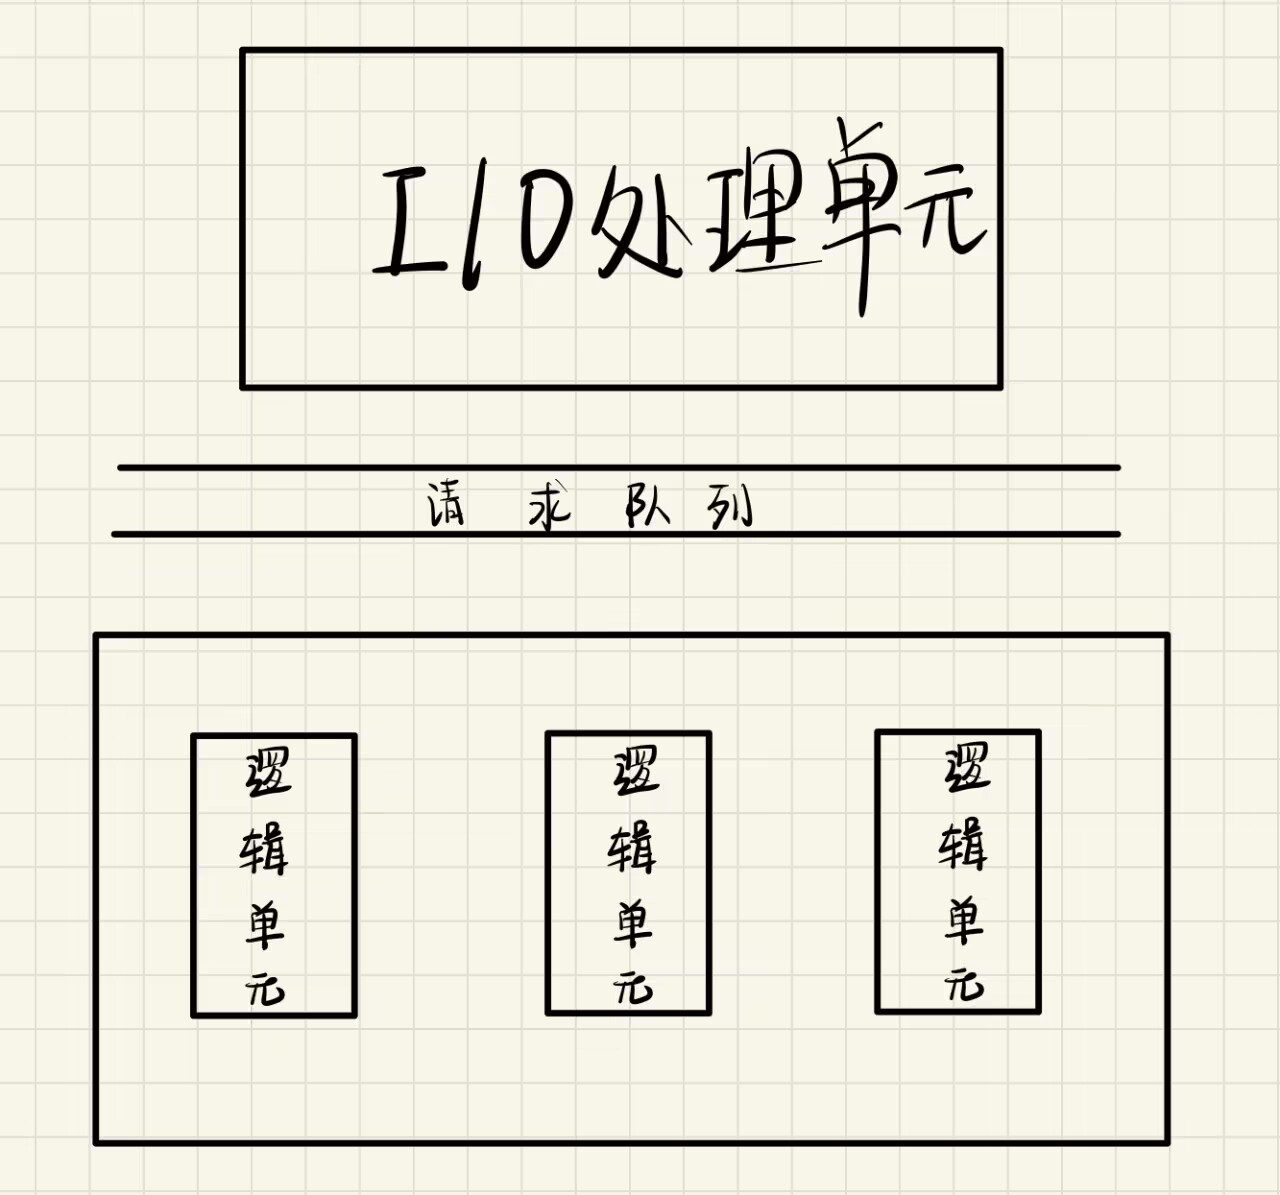 I/O处理单元
请求队列
逻辑单元
逻辑单元
逻辑单元